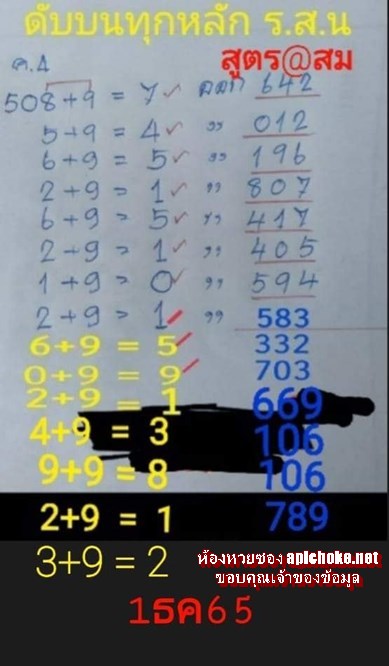 ดับบนทุกหลัก ร.ส.น
สูตร@สม
ค.4
508+9 = 7 ออก 642
5+9 = 4 " 012
6+9 = 5 " 196
2+9 = 1 " 807
6+9 = 5 " 417
2+9 = 1 " 405
1+9 = 0 " 594
2+9 = 1 " 583
6+9 = 5 332
0+9 = 9 703
2+9 = 1 669
4+9 = 3 106
9+9 = 8 106
2+9 = 1 789
3+9 = 2
ห้องหวยซอง apichoke.net
ขอบคุณเจ้าของข้อมูล
1ธค65